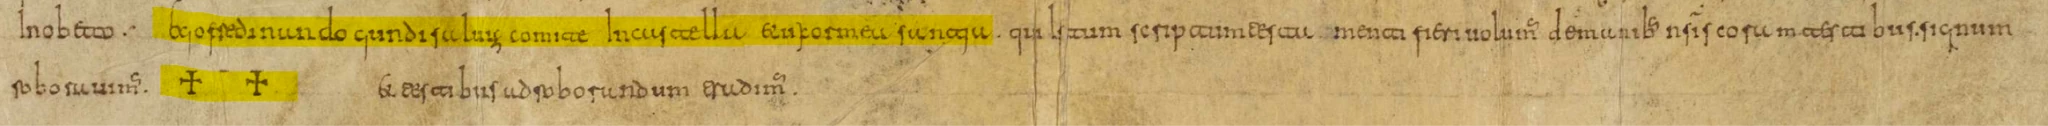 In obeto . ego fredinando gundisaluiz comite In castella et uxor mea sanctia . qui istum scriptum testamenti fieri uolumꝰ de manibꝰ nr̄is coram testibus . signum
roborauimꝰ . ✝ ✝ et testibus ad roborandum tradimꝰ .